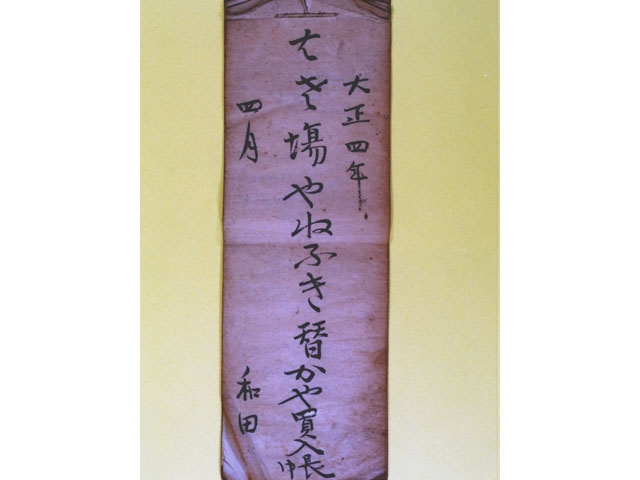 大正四年
場やねふき替かや買入帳
四月
和田